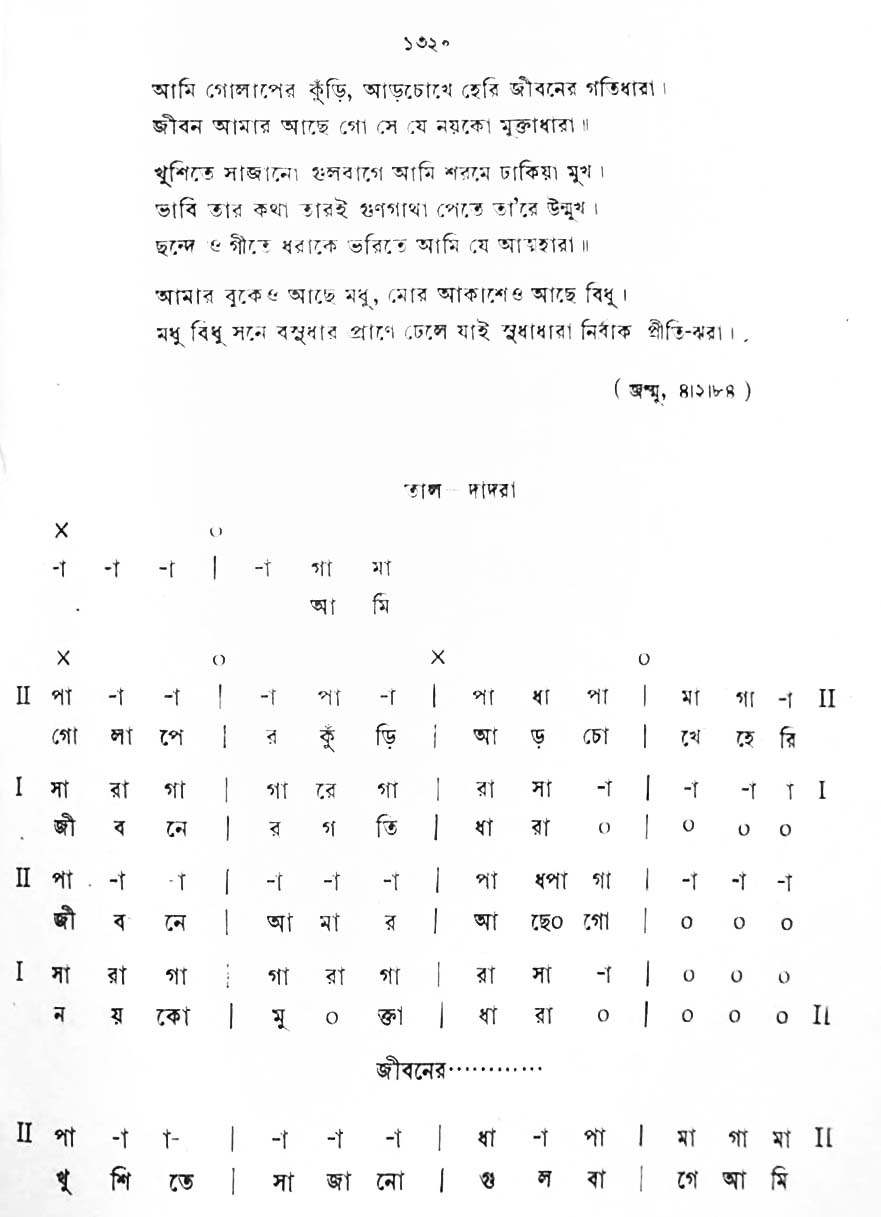 ১৩২০
আমি গোলাপের কুঁড়ি, আড়চোখে হেরি জীবনের গতিধারা।
জীবন আমার আছে গো সে যে নয়কো মুক্তাধারা॥
খুশিতে সাজানো গুলবাগে আমি শরমে ঢাকিয়া মুখ।
ভাবি তার কথা তারই গুণগাথা পেতে তা'রে উন্মুখ।
ছন্দে ও গীতে ধরাকে ভরিতে আমি যে আত্মহারা॥
আমার বুকেও আছে মধু, মোর আকাশেও আছে বিধু।
মধু বিধু সনে বসুধার প্রাণে ঢেলে যাই সুধাধারা নির্বাক প্রীতি-ঝরা।
( জম্মু, ৪।২।৮৪ )
তাল — দাদরা
× ০
-া -া -া | -া গা মা
আ মি
× ০ × ০
II পা -া -া | -া পা -া | পা ধা পা | মা গা -া II
গো লা পে | র কুঁ ড়ি | আ ড় চো | খে হে রি
I সা রা গা | গা রে গা | রা সা -া | -া -া া I
জী ব নে | র গ তি | ধা রা ০ | ০ ০ ০
II পা -া -া | -া -া -া | পা ধপা গা | -া -া -া
জী ব নে | আ মা র | আ ছে০ গো | ০ ০ ০
I সা রা গা | গা রা গা | রা সা -া | ০ ০ ০
ন য় কো | মু ০ ক্তা | ধা রা ০ | ০ ০ ০ II
জীবনের············
II পা -া া- | -া -া -া | ধা -া পা | মা গা মা II
খু শি তে | সা জা নো | গু ল বা | গে আ মি